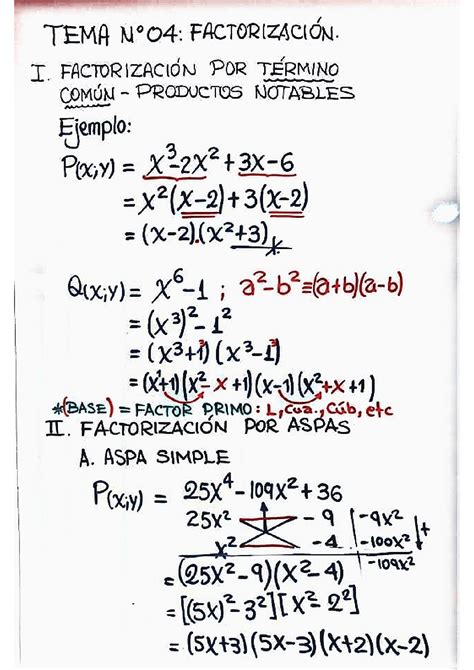 TEMA N°04: FACTORIZACIÓN.
I. FACTORIZACIÓN POR TÉRMINO
COMÚN - PRODUCTOS NOTABLES
Ejemplo:
P(x;y) = x³-2x²+3x-6
= x²(x-2)+3(x-2)
= (x-2).(x²+3)
Q(x;y) = x⁶-1 ; a²-b²≡(a+b)(a-b)
= (x³)²-1²
= (x³+1³)(x³-1³)
= (x+1)(x²-x+1)(x-1)(x²+x+1)
*(BASE) = FACTOR PRIMO: L, Cua., Cúb, etc
II. FACTORIZACIÓN POR ASPAS
A. ASPA SIMPLE
P(x;y) = 25x⁴-109x²+36
25x² -9 | -9x²
x² -4 | -100x² +
-109x²
= (25x²-9)(x²-4)
= [(5x)²-3²][x²-2²]
= (5x+3)(5x-3)(x+2)(x-2)